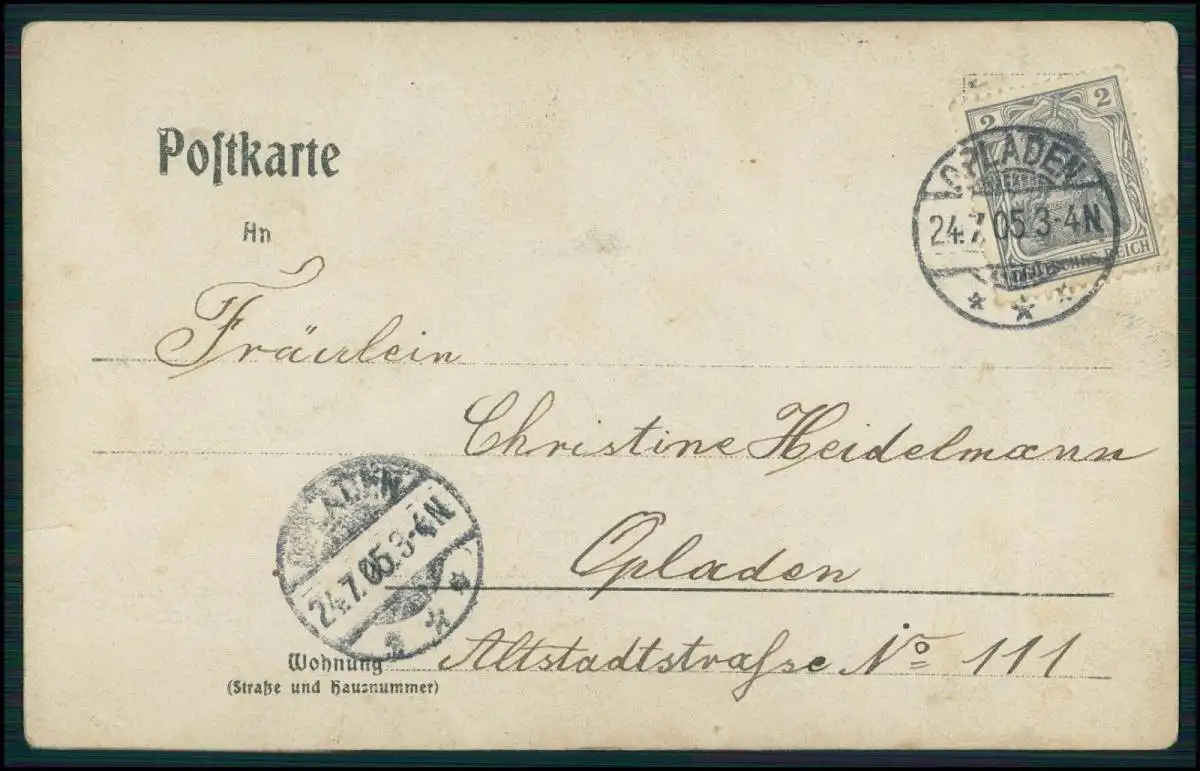 Poſtkarte
An
2 2
DEUTSCHES REICH
OPLADEN
24.7.05.3-4N
* * *
Fräulein
Christine Heidelmann
Opladen
LADEN
24.7.05.3-4N
* * *
Wohnung
(Straße und Hausnummer)
Altstadtstraſse No 111